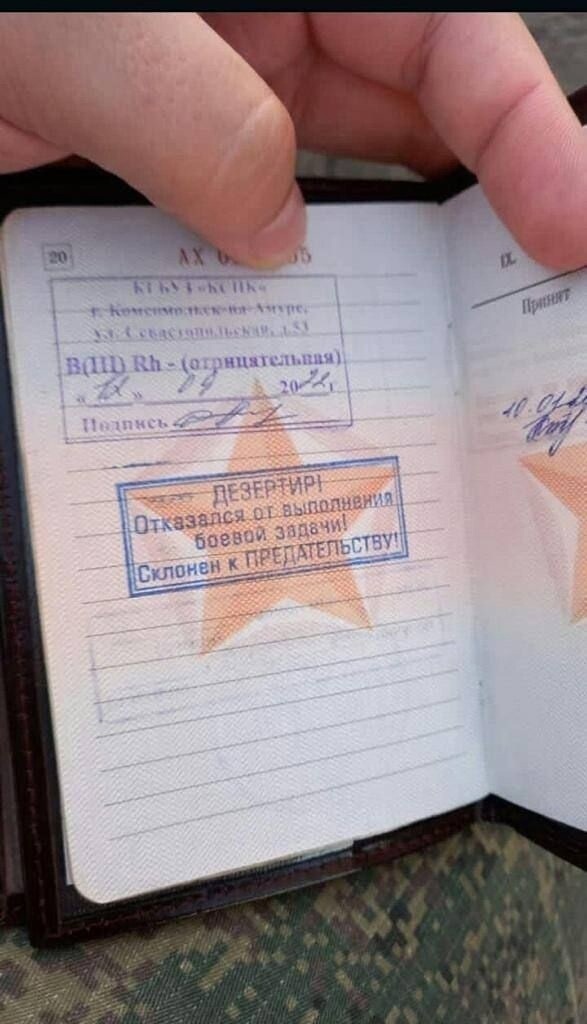 20
АХ 0 5
КГБУЗ «КСПК»
г. Комсомольск-на-Амуре,
ул. Севастопольская, д.53
В(III) Rh - (отрицательная)
« 12 » 20 22 г.
Подпись
ДЕЗЕРТИР!
Отказался от выполнения
боевой задачи!
Склонен к ПРЕДАТЕЛЬСТВУ!
IX.
Принят
10.01